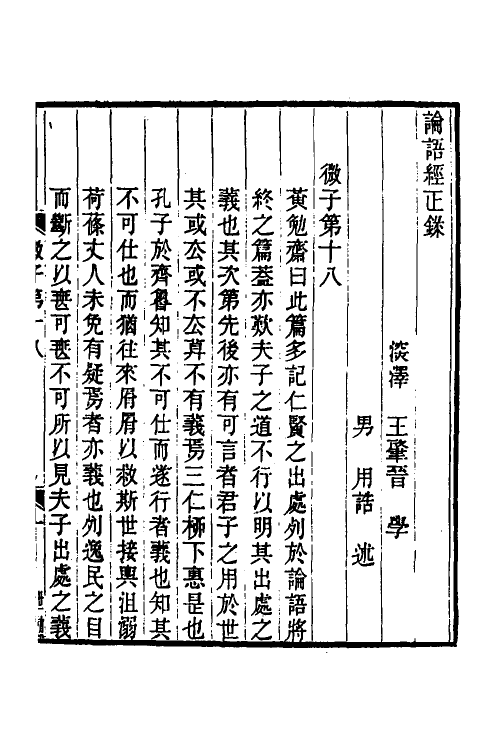 論語經正錄
淡澤　王肇晉　學
男　用誥　述
微子第十八
黃勉齋曰此篇多記仁賢之出處列於論語將
終之篇蓋亦歎夫子之道不行以明其出處之
義也其次第先後亦有可言者君子之用於世
其或去或不去莫不有義焉三仁柳下惠是也
孔子於齊魯知其不可仕而遂行者義也知其
不可仕也而猶往來屑屑以救斯世接輿沮溺
荷蓧丈人未免有疑焉者亦義也列逸民之目
而斷之以無可無不可所以見夫子出處之義
微子第十八
一